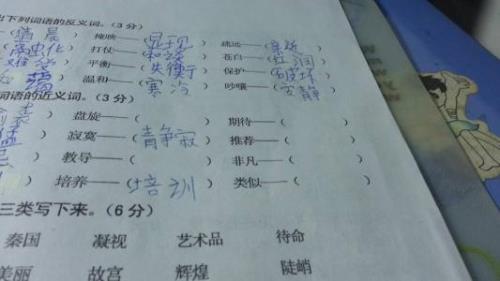 出下列词语的反义词。(3分)
清晨) 掩映——(显现) 疏远——(亲近
打仗——(和 苍白——(红润
平衡——(失衡) 保护——(破坏
温和——(寒冷) 吵嚷——(安静
词语的近义词。(3分)
盘旋——( ) 期待——(
寂寞——(静寂) 推荐——(
教导——( ) 非凡——(
培养——(培训) 类似——(
三类写下来。(6分)
秦国 凝视 艺术品 待命
美丽 故宫 辉煌 陡峭